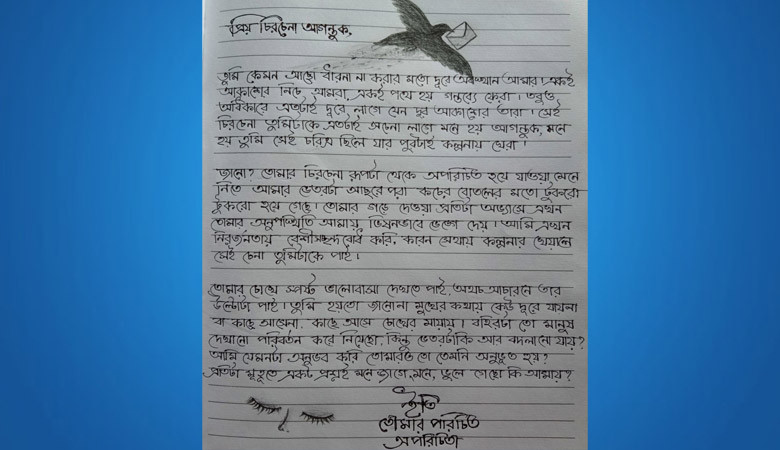 প্রিয় চিরচেনা আগন্তুক,
তুমি কেমন আছো ধারনা না করার মতো দূরে অবস্থান আমার। একই
আকাশের নিচে আমরা, একই পথে হয় গন্তব্যে ফেরা। তবুও
অধিকারে এতটাই দূরে লাগে যেন দূর আকাশের তারা। সেই
চিরচেনা তুমিটাকে এতটাই অচেনা লাগে মনে হয় আগন্তুক, মনে
হয় তুমি সেই চরিত্র ছিলে যার পুরটাই কল্পনায় ঘেরা।
জানো? তোমার চিরচেনা রূপটা থেকে অপরিচিত হয়ে যাওয়া মেনে
নিতে আমার ভেতরটা আছরে পরা কাচের বোতলের মতো টুকরো
টুকরো হয়ে গেছে। তোমার গড়ে দেওয়া প্রতিটা অভ্যাসে এখন
তোমার অনুপস্থিতি আমায় ভিষনভাবে ভেঙ্গে দেয়। আমি এখন
নিরবনির্জনতায় বেশীসাচ্ছন্দবোধ করি, কারন সেথায় কল্পনার খেয়ালে
সেই চেনা তুমিটাকে পাই।
তোমার চোখে স্পষ্ট ভালোবাসা দেখতে পাই, অথচ আচারনে তার
উল্টোটা পাই। তুমি হয়তো জানোনা মুখের কথায় কেউ দূরে যায়না
বা কাছে আসেনা, কাছে আসে চোখের মায়ায়। বহিরটা তো মানুষ
দেখানো পরিবর্তন করে নিয়েছো, কিন্তু ভেতরটাকি আর বদলানো যায়?
আমি যেমনটা অনুভব করি তোমারও তো তেমনি অনুভূত হয়?
প্রতিটা মুহূতে একটা প্রশ্নই মনে জাগে, মনে, ভুলে গেছো কি আমায়?
ইতি
তোমার পরিচিত
অপরিচিতা